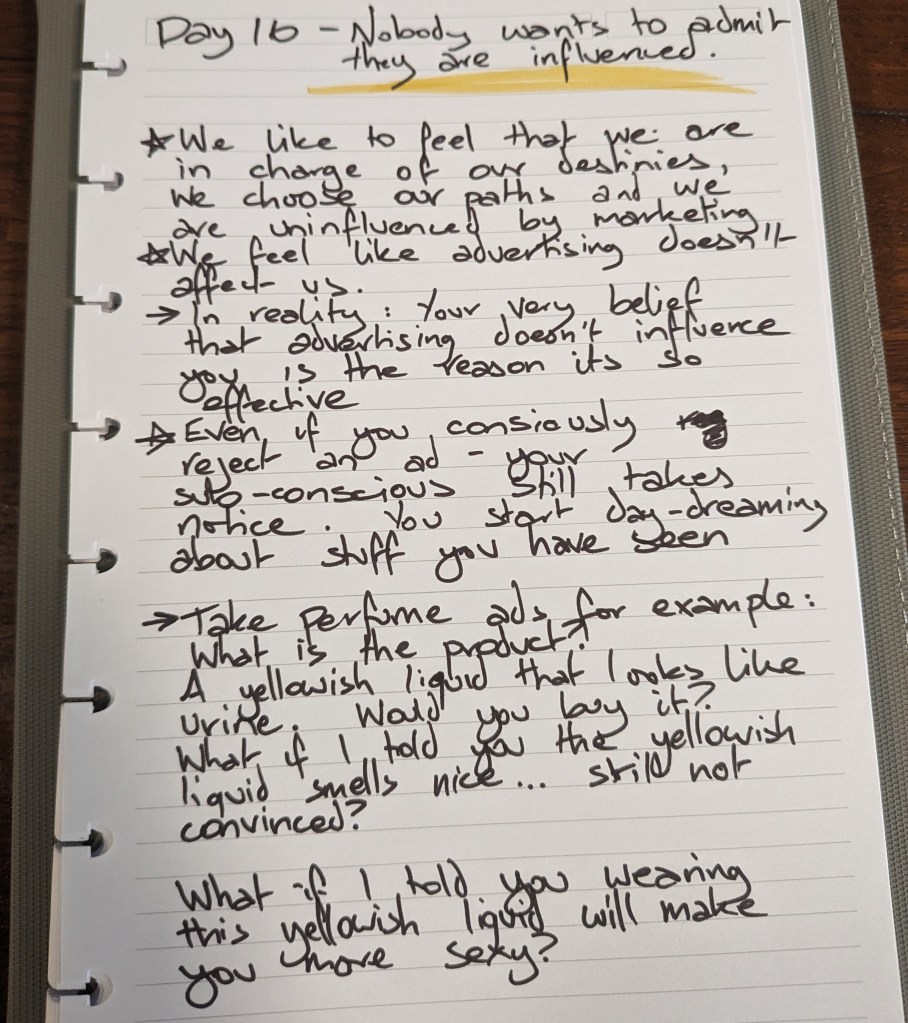 Day 16 - Nobody wants to admit
they are influenced.
☆ We like to feel that we are
in charge of our destinies,
we choose our paths and we
are uninfluenced by marketing
☆ We feel like advertising doesn't
affect us.
→ In reality: Your very belief
that advertising doesn't influence
you is the reason its so
effective
→ Even if you consiously
reject an ad - your
sub-conscious still takes
notice. You start day-dreaming
about stuff you have seen
→ Take perfume ads for example:
What is the product?
A yellowish liquid that looks like
urine. Would you buy it?
What if I told you the yellowish
liquid smells nice... still not
convinced?
What if I told you wearing
this yellowish liquid will make
you more sexy?